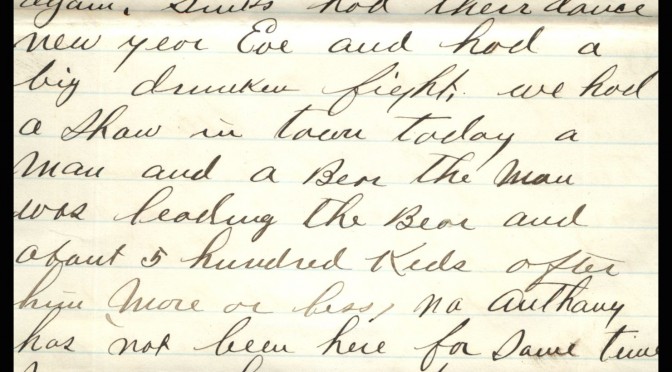 again. had their dance
new year Eve and had a
big drunken fight. we had
a Show in town today a
man and a Bear the man
was leading the Bear and
about 5 hundred Kids after
him more or less, no Anthony
has not been here for some time